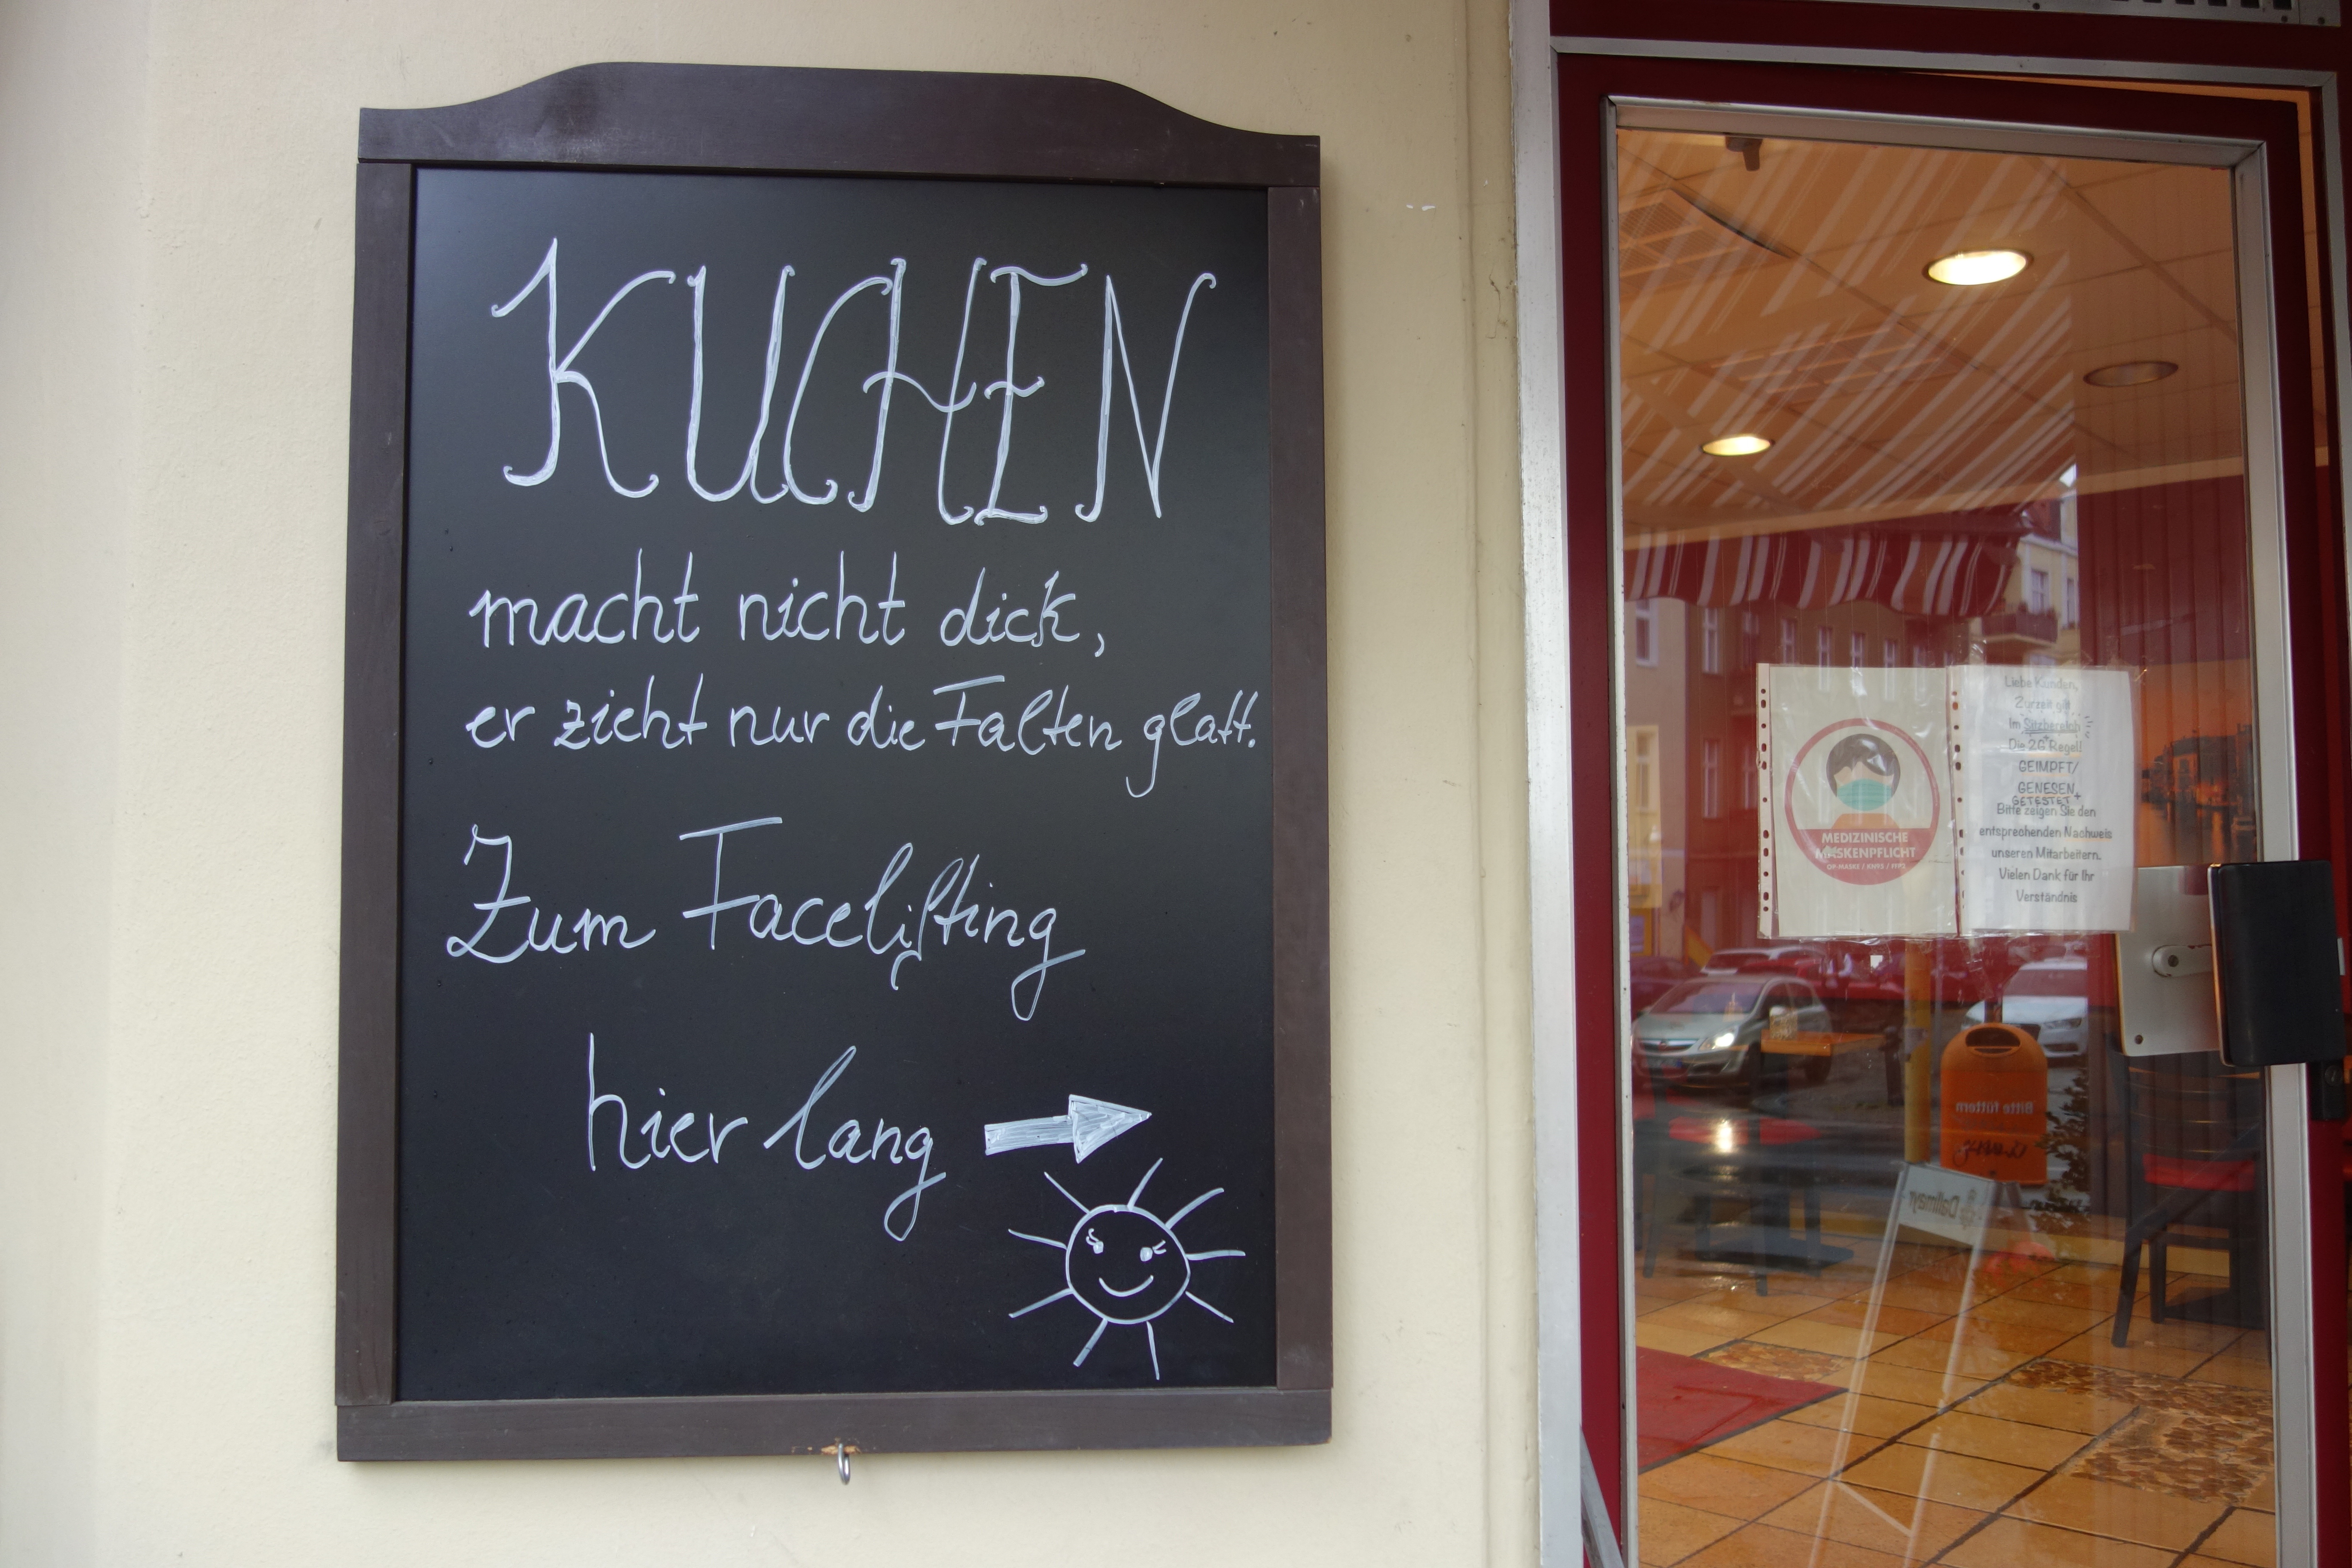 KUCHEN
macht nicht dick,
er zieht nur die Falten glatt.
Zum Facelifting
hier lang
MEDIZINISCHE
MASKENPFLICHT
OP-MASKE / KN95 / FFP2
Liebe Kunden,
Zurzeit gilt
Im Sitzbereich
Die 2G+ Regel!
GEIMPFT/
GENESEN +
GETESTET
Bitte zeigen Sie den
entsprechenden Nachweis
unseren Mitarbeitern.
Vielen Dank für Ihr
Verständnis
Bitte füttern
Dallmayr